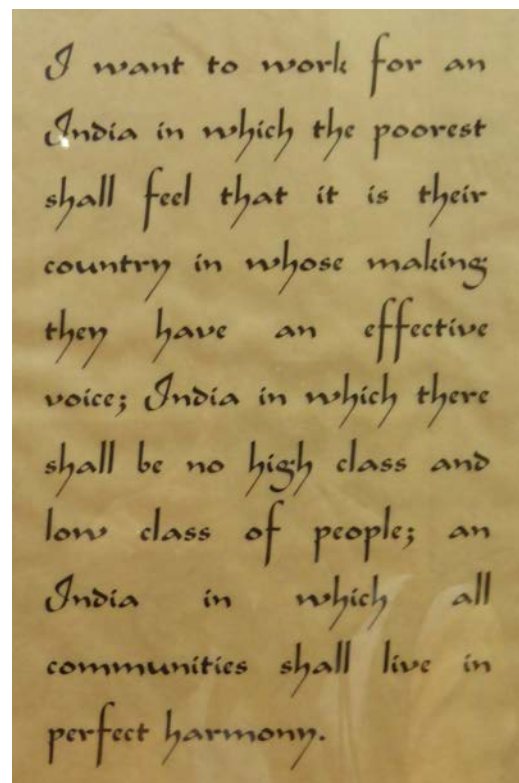 I want to work for an
India in which the poorest
shall feel that it is their
country in whose making
they have an effective
voice; India in which there
shall be no high class and
low class of people; an
India in which all
communities shall live in
perfect harmony.